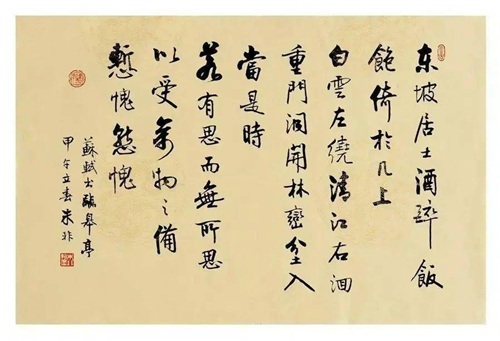 东坡居士酒醉飯
飽倚於几上
白雲左繞清江右洄
重門洞開林巒坌入
當是時
若有思而無所思
以受萬物之備
慙愧慙愧
蘇軾书臨皋亭
甲午立春